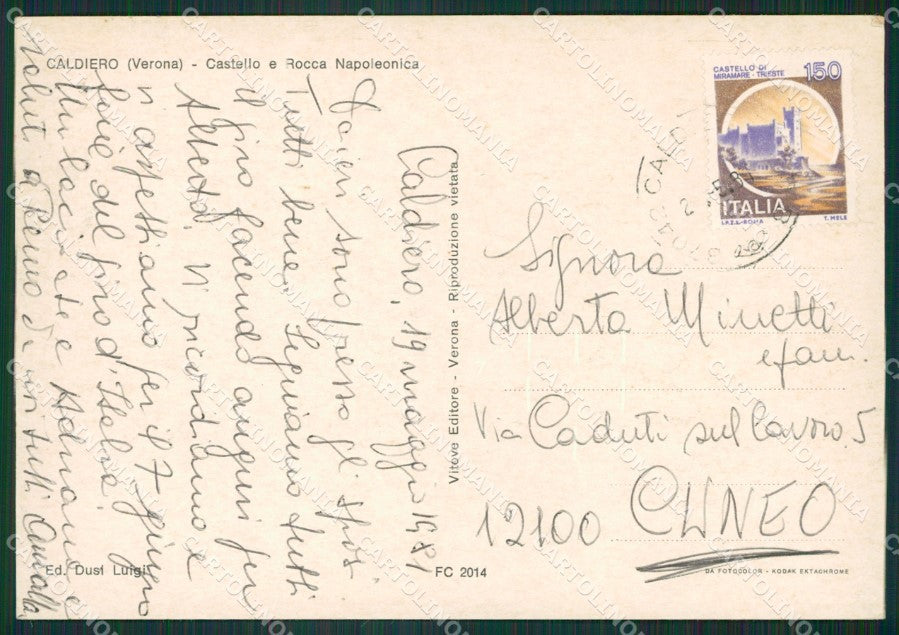 CALDIERO (Verona) - Castello e Rocca Napoleonica
Caldiero, 19 maggio 1981
sono presso gli sposi
Tutti bene. Seguiamo tutti
il giro facendo auguri per
Alberto. Vi ricordiamo e
vi aspettiamo per il 7 giugno
del giro d'Italia
e Adriano e
saluti a Remo da voi tutti
Vitove Editore - Verona - Riproduzione vietata
Ed. Dusi Luigi
FC 2014
CASTELLO DI
MIRAMARE - TRIESTE
150
ITALIA
I.P.Z.S.-ROMA
T. MELE
Signora
Alberta Minetti
e fam.
Via Caduti sul Lavoro 5
12100 CUNEO
DA FOTOCOLOR - KODAK EKTACHROME
CARTOLINOMANIA